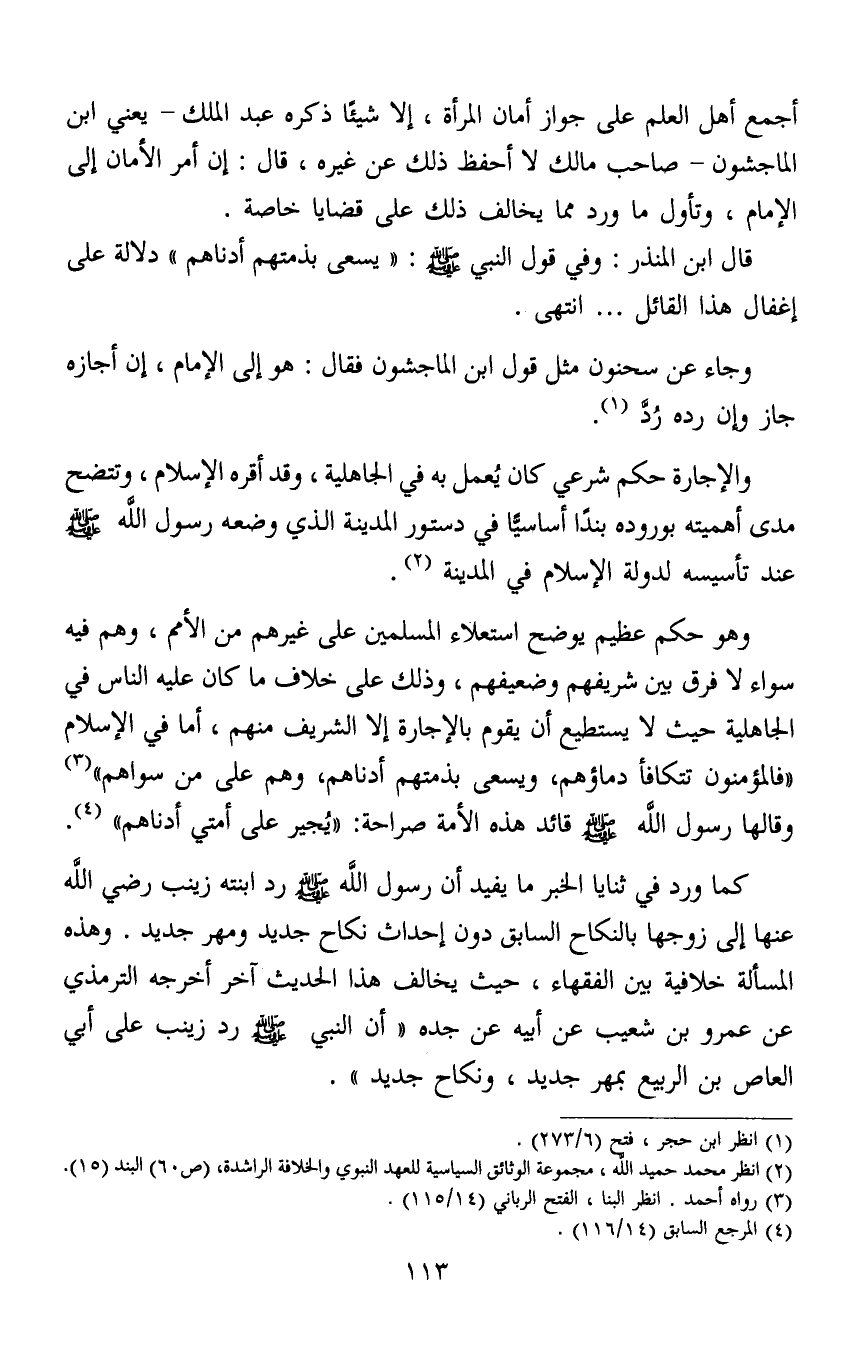 أجمع أهل العلم على جواز أمان المرأة ، إلا شيئًا ذكره عبد الملك – يعني ابن
الماجشون – صاحب مالك لا أحفظ ذلك عن غيره ، قال : إن أمر الأمان إلى
الإمام ، وتأول ما ورد مما يخالف ذلك على قضايا خاصة .
قال ابن المنذر : وفي قول النبي ﷺ : « يسعى بذمتهم أدناهم » دلالة على
إغفال هذا القائل ... انتهى .
وجاء عن سحنون مثل قول ابن الماجشون فقال : هو إلى الإمام ، إن أجازه
جاز وإن رده رُدَّ (١).
والإجارة حكم شرعي كان يُعمل به في الجاهلية ، وقد أقره الإسلام ، وتتضح
مدى أهميته بوروده بندًا أساسيًّا في دستور المدينة الذي وضعه رسول اللَّه ﷺ
عند تأسيسه لدولة الإسلام في المدينة (٢) .
وهو حكم عظيم يوضح استعلاء المسلمين على غيرهم من الأمم ، وهم فيه
سواء لا فرق بين شريفهم وضعيفهم ، وذلك على خلاف ما كان عليه الناس في
الجاهلية حيث لا يستطيع أن يقوم بالإجارة إلا الشريف منهم ، أما في الإسلام
«فالمؤمنون تتكافأ دماؤهم، ويسعى بذمتهم أدناهم، وهم على من سواهم»(٣)
وقالها رسول اللَّه ﷺ قائد هذه الأمة صراحة: «يُجير على أمتي أدناهم» (٤).
كما ورد في ثنايا الخبر ما يفيد أن رسول اللَّه ﷺ رد ابنته زينب رضي اللَّه
عنها إلى زوجها بالنكاح السابق دون إحداث نكاح جديد ومهر جديد . وهذه
المسألة خلافية بين الفقهاء ، حيث يخالف هذا الحديث آخر أخرجه الترمذي
عن عمرو بن شعيب عن أبيه عن جده « أن النبي ﷺ رد زينب على أبي
العاص بن الربيع بمهر جديد ، ونكاح جديد » .
(١) انظر ابن حجر ، فتح (٢٧٣/٦) .
(٢) انظر محمد حميد اللَّه ، مجموعة الوثائق السياسية للعهد النبوي والخلافة الراشدة، (ص٦٠) البند (١٥).
(٣) رواه أحمد . انظر البنا ، الفتح الرباني (١١٥/١٤) .
(٤) المرجع السابق (١١٦/١٤) .
١١٣